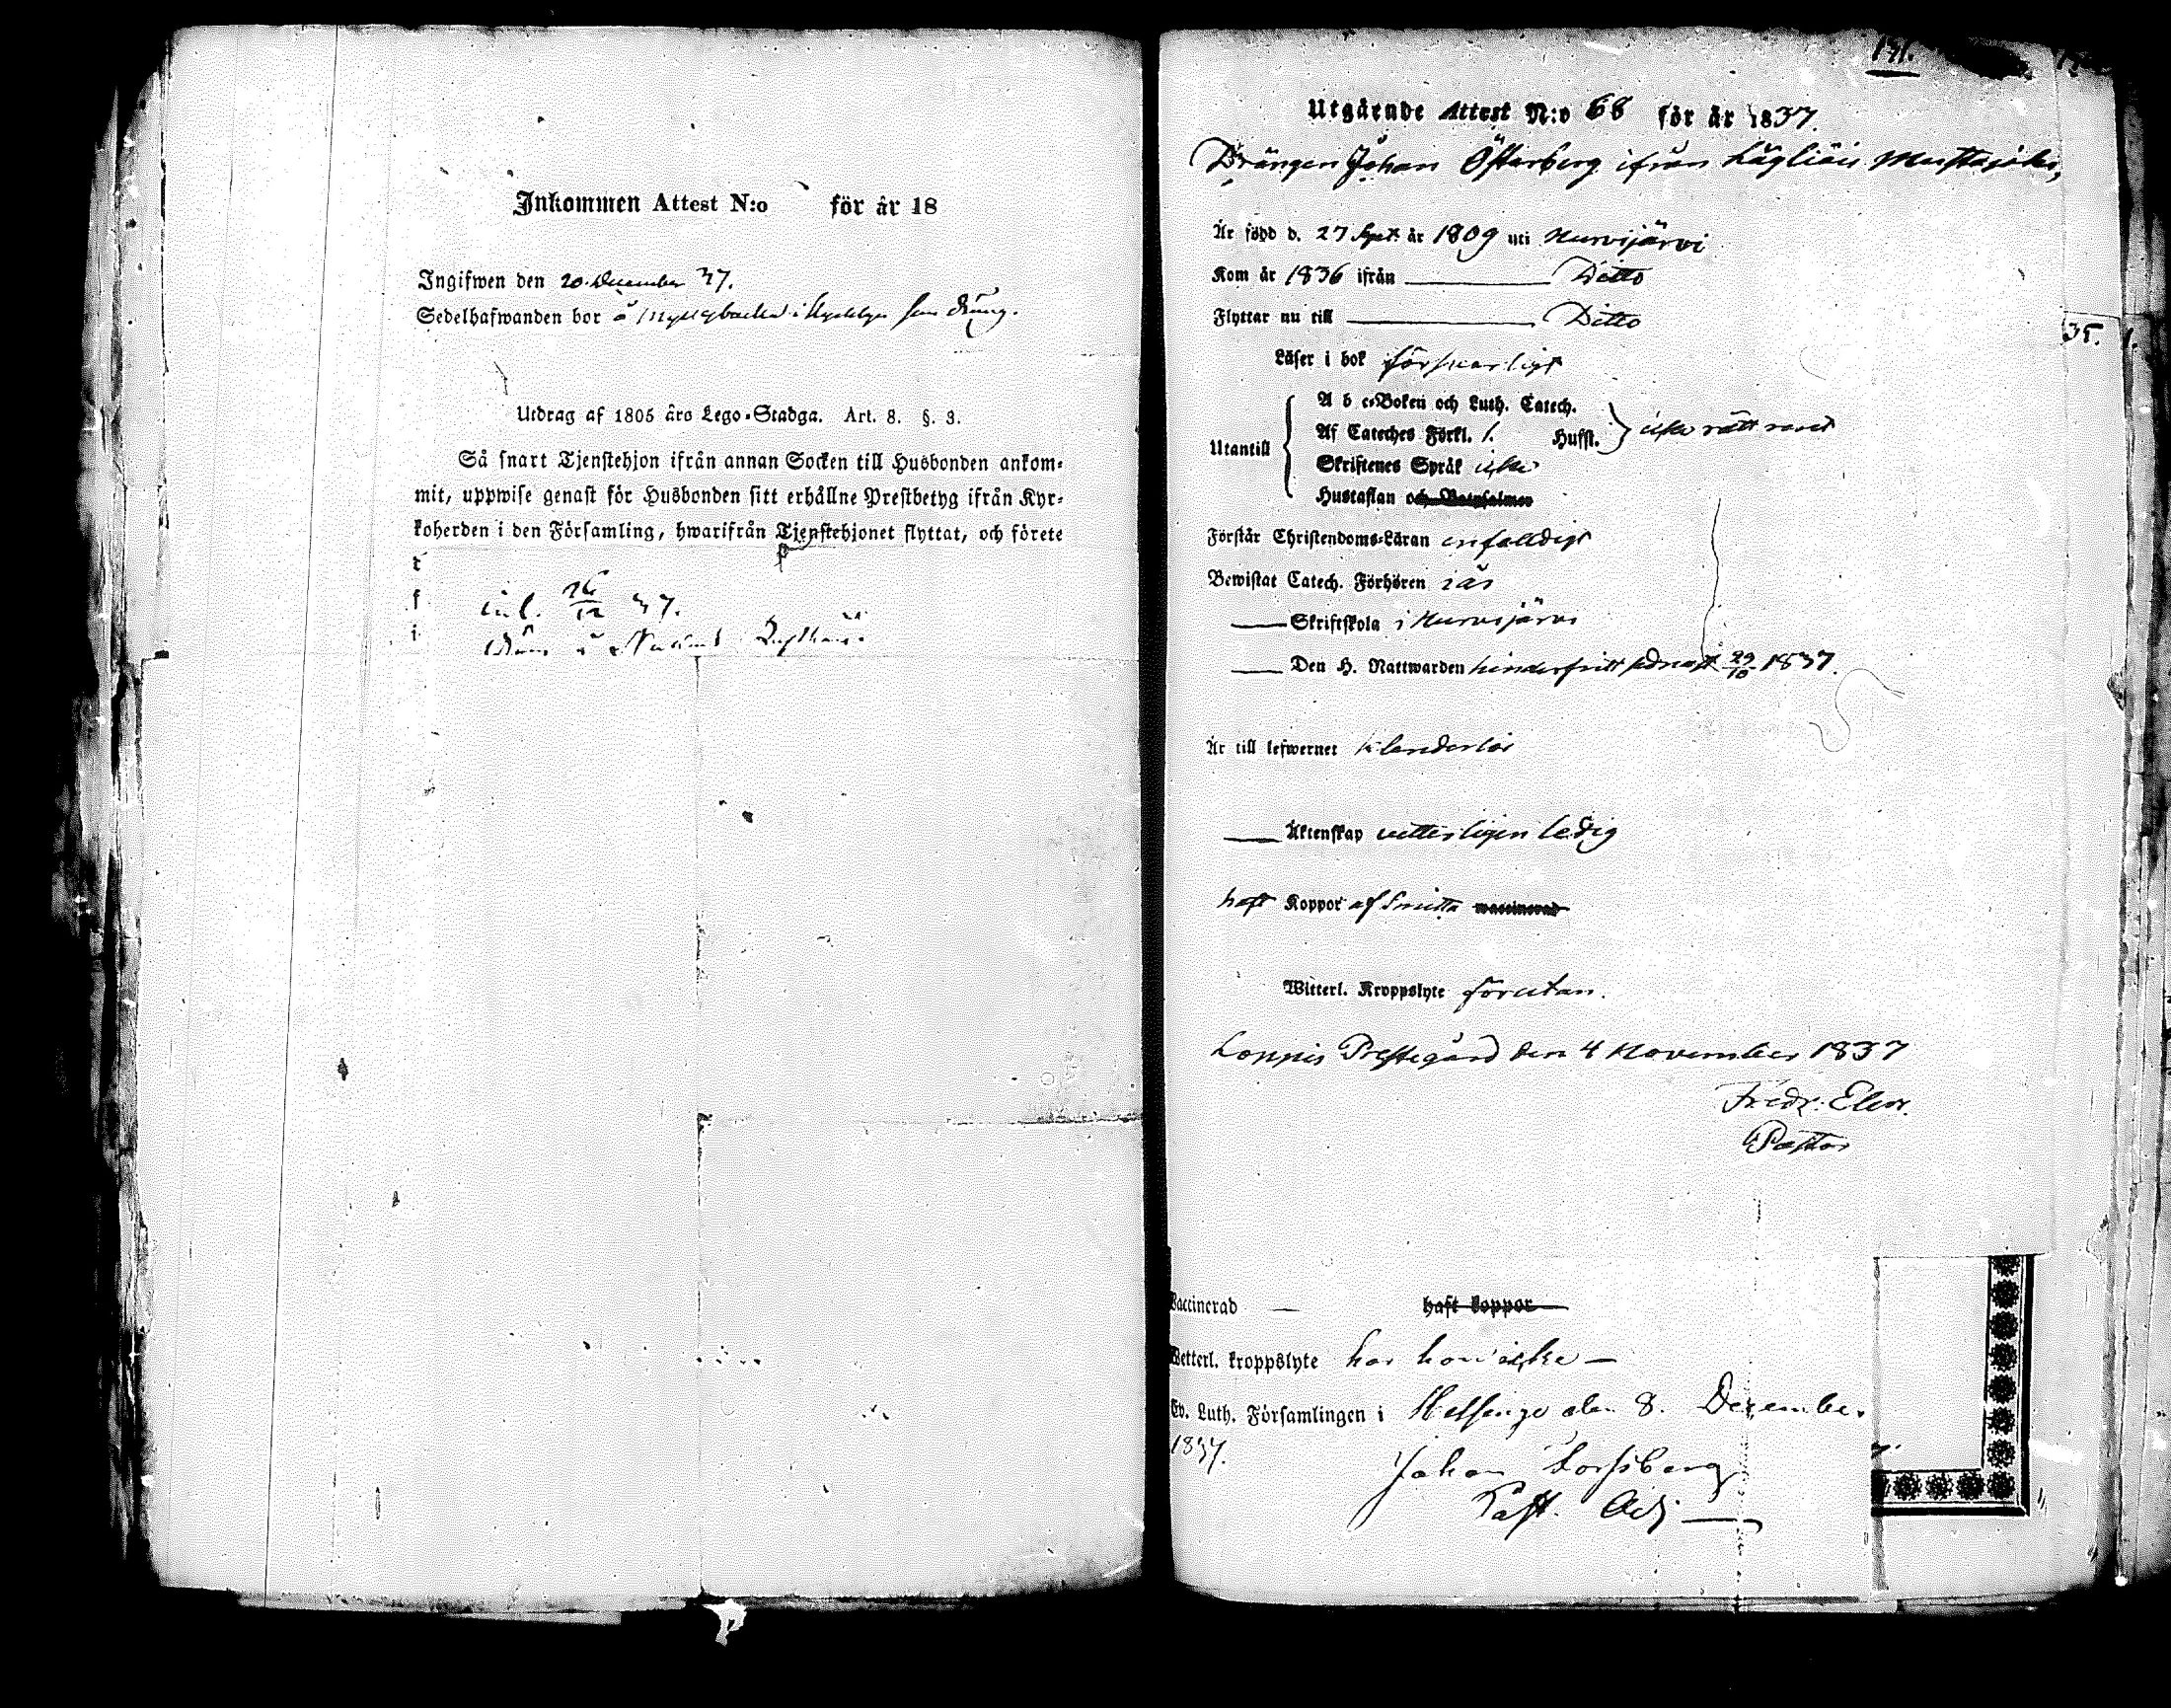 Inkommen Attest N:o för år 18
Ingifwen den 20. December 37.
Sedelhafwanden bor å i som dräng.
Utdrag af 1805 års Lego-Stadga. Art. 8. §. 3.
Så snart Tjenstehjon ifrån annan Socken till Husbonden ankom-
mit, uppwise genast för Husbonden sitt erhållne Prestbetyg ifrån Kyr-
koherden i den Församling, hwarifrån Tjenstehjonet flyttat, och förete
t
f
i
inl. 26/12 37.
131.
Utgående Attest N:o 68 för år 1837.
Drängen Johan Österberg ifrån Läyliäis
Är född d. 27 Sept. år 1809 uti Nurmijärvi
Kom år 1836 ifrån Ditto
Flyttar nu till Ditto
35. 1.
Läser i bok försvarligt
Utantill
A b c-Boken och Luth. Catech.
Af Cateches Förkl. 1. Hufst.
Skriftenes Språk icke
Hustaflan och Botpsalmer
icke rätt redt
Förstår Christendoms-Läran enfaldigt
Bewistat Catech. Förhören i år
Skriftskola i Nurmijärvi
Den H. Nattwarden hinderfritt sednast 29/10 1837.
Är till lefwernet klanderlös
Äktenskap vetterligen ledig
haft Koppor af Smitta waccinerad
Witterl. Kroppslyte förutan.
Loppis Prestegård den 4 November 1837
Fredr. Elew.
Pastor
Vaccinerad — haft koppor
Wetterl. kroppslyte har hon icke —
Ev. Luth. Församlingen i Helsinge den 8. December
1837.
Johan Forssberg
Past. Adj.